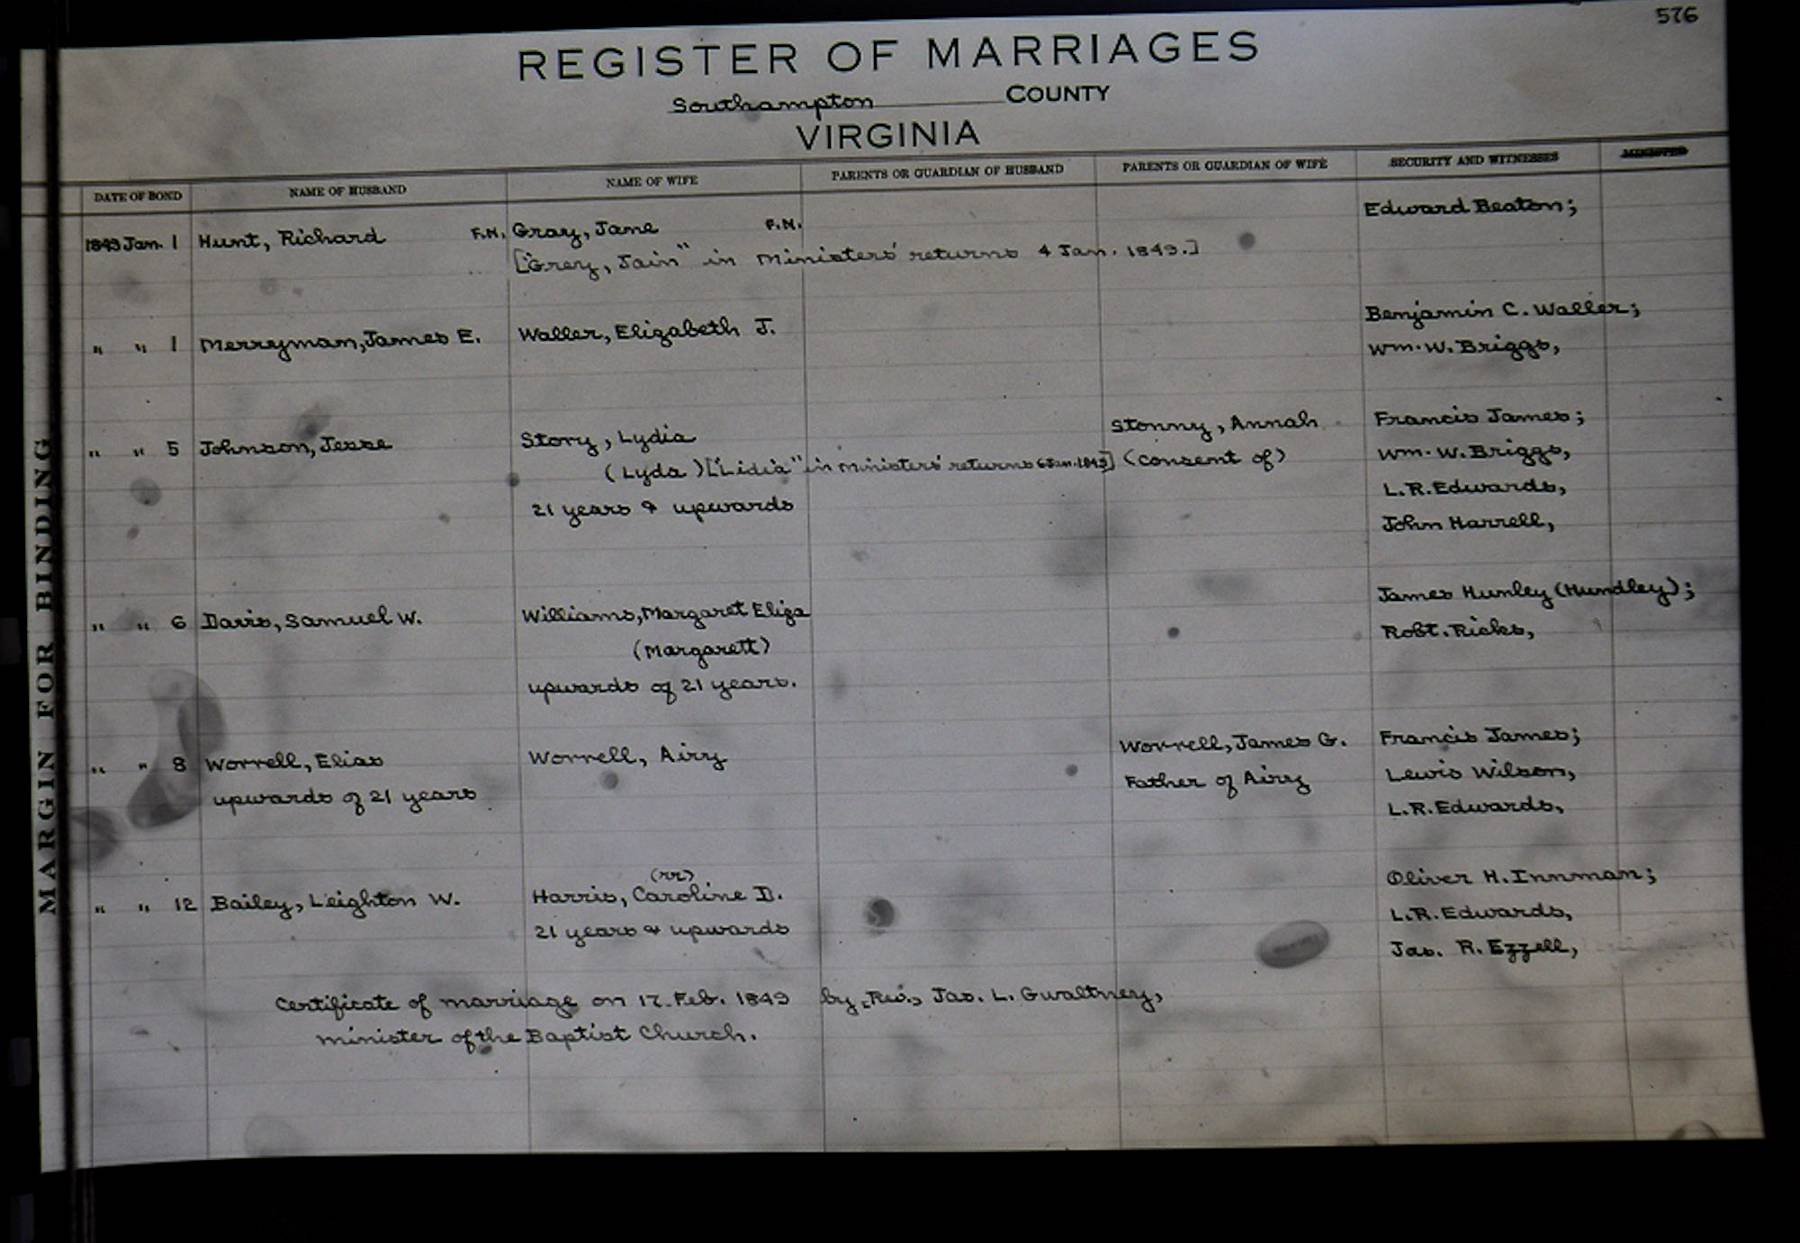 576
REGISTER OF MARRIAGES
Southampton COUNTY
VIRGINIA
DATE OF BOND NAME OF HUSBAND NAME OF WIFE PARENTS OR GUARDIAN OF HUSBAND PARENTS OR GUARDIAN OF WIFE SECURITY AND WITNESSES MINISTER
1849 Jan. 1 Hunt, Richard F.N. Gray, Jane F.N. Edward Beaton;
["Grey, Jain" in Ministers' returns 4 Jan. 1849.]
" " 1 Merryman, James E. Waller, Elizabeth J. Benjamin C. Waller;
Wm. W. Briggs,
" " 5 Johnson, Jesse Story, Lydia Stonny, Annah Francis James;
(Lyda) ["Lidia" in Ministers' returns 6 Jan. 1849] (consent of) Wm. W. Briggs,
21 years & upwards L.R. Edwards,
John Harrell,
" " 6 Davis, Samuel W. Williams, Margaret Eliza James Hunley (Hundley);
(Margarett) Robt. Ricks,
upwards of 21 years.
" " 8 Worrell, Elias Worrell, Airy Worrell, James G. Francis James;
upwards of 21 years Father of Airy Lewis Wilson,
L.R. Edwards,
(rr)
" " 12 Bailey, Leighton W. Harris, Caroline D. Oliver H. Innman;
21 years & upwards L.R. Edwards,
Jas. R. Ezzell,
Certificate of marriage on 17 Feb. 1849 by, Rev., Jas. L. Gwaltney,
minister of the Baptist Church.
MARGIN FOR BINDING